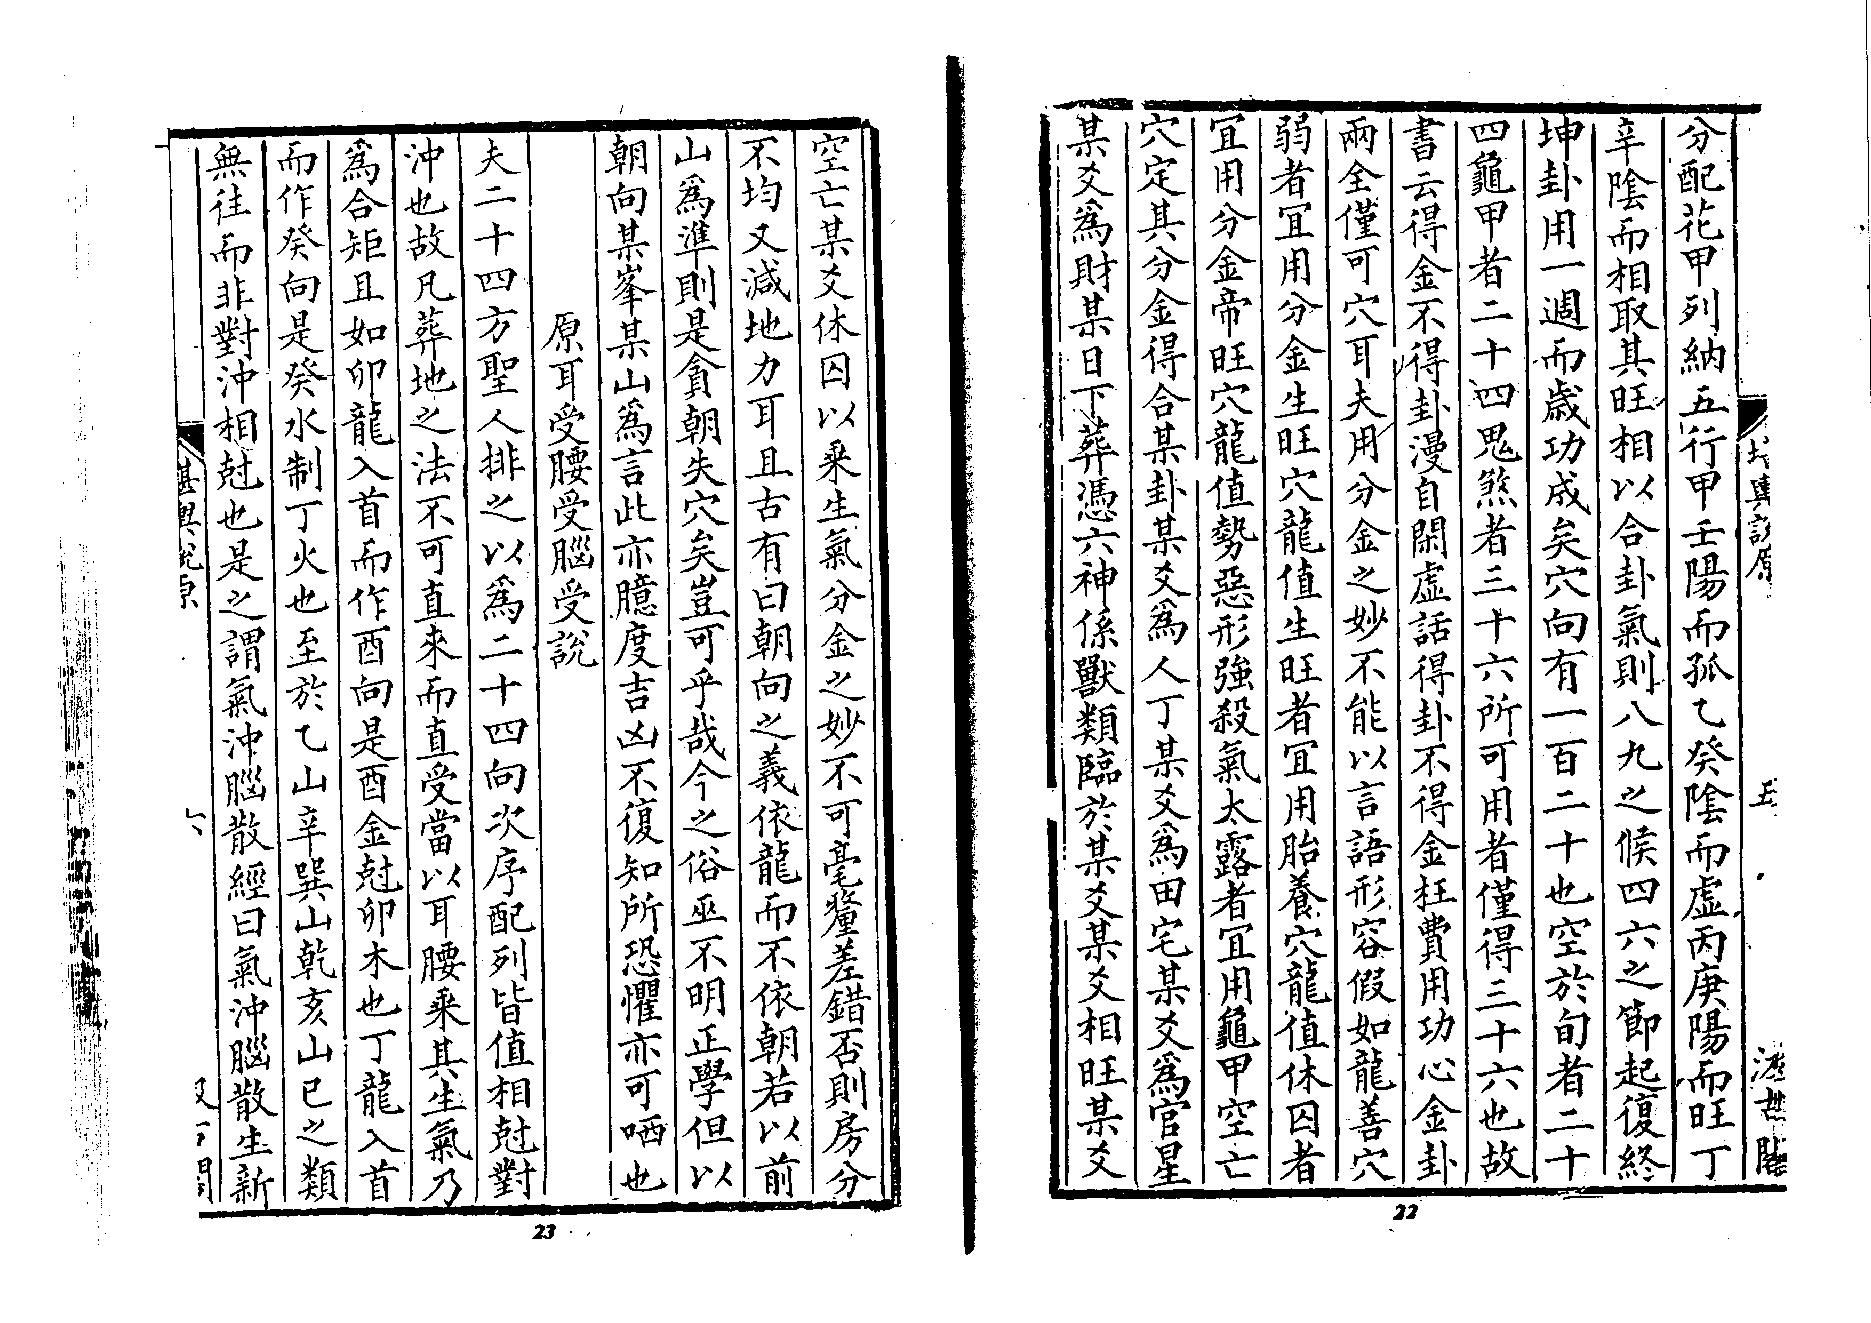 分配花甲列納五行甲壬陽而孤乙癸陰而虛丙庚陽而旺丁
辛陰而相取其旺相以合卦氣則八九之候四六之節起復終
坤卦用一週而歲功成矣穴向有一百二十也空於旬者二十
四龜甲者二十四鬼煞者三十六所可用者僅得三十六也故
書云得金不得卦漫自閑虛話得卦不得金枉費用功心金卦
兩全僅可穴耳夫用分金之妙不能以言語形容假如龍善穴
弱者宜用分金生旺穴龍值生旺者宜用胎養穴龍值休囚者
宜用分金帝旺穴龍值勢惡形強殺氣太露者宜用龜甲空亡
穴定其分金得合某卦某爻為人丁某爻為田宅某爻為官星
某爻為財某日下葬憑六神係獸類臨於某爻某爻相旺某爻
22
空亡某爻休囚以乘生氣分金之妙不可毫釐差錯否則房分
不均又減地力耳且古有曰朝向之義依龍而不依朝若以前
山為準則是貪朝失穴矣豈可乎哉今之俗巫不明正學但以
朝向某峯某山為言此亦臆度吉凶不復知所恐懼亦可哂也
原耳受腰受腦受說
夫二十四方聖人排之以為二十四向次序配列皆值相尅對
沖也故凡葬地之法不可直來而直受當以耳腰乘其生氣乃
為合矩且如卯龍入首而作酉向是酉金尅卯木也丁龍入首
而作癸向是癸水制丁火也至於乙山辛巽山乾亥山巳之類
無往而非對沖相尅也是之謂氣沖腦散經曰氣沖腦散生新
堪輿說原
六
23